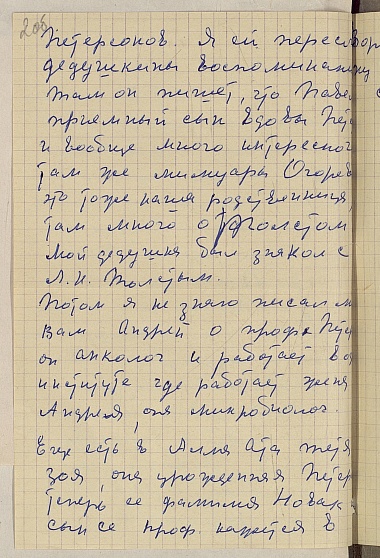 205
Петерсонов. Я ей пересовор
дедушкины воспоминания
там он пишет, что Павел
приемный сын вдовы Пет
и вообще много интересног
там же мемуары Огорев
это тоже наша родственница,
там много о Толстом
мой дедушка был знаком с
Л. Н. Толстым.
Потом я не знаю писал ли
Вам Андрей о проф. Петер
он онколог и работает в
институте где работает жена
Андрея, она микробиолог.
Еще есть в Алма Ата тетя
Зоя, она урожденная Петер
теперь ее фамилия Новак
сын ее проф. кажется в